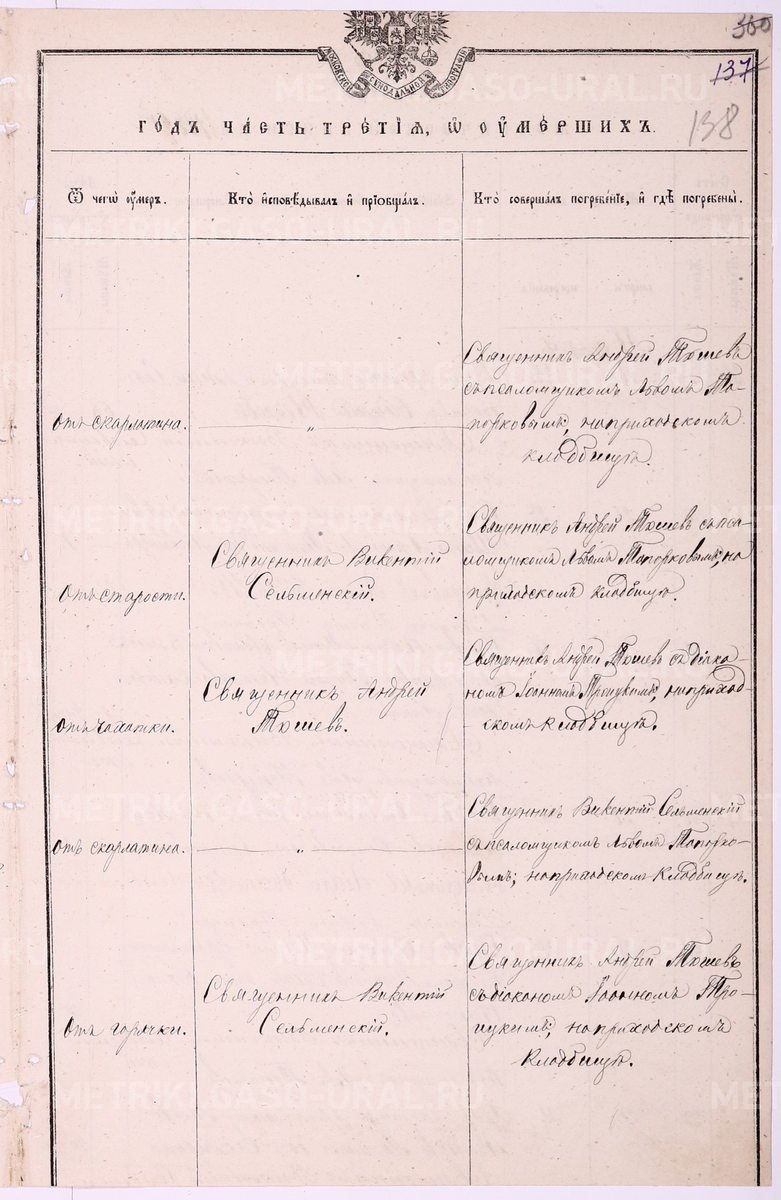 360
137
138
МОСКОВСКОЙ СѴНОДАЛЬНОЙ ТИПОГРАФІИ
го́дъ ча́сть тре́тїѧ, ѡ҆ ᲂу҆ме́ршихъ.
Ѿ чегѡ̀ ᲂу҆́меръ.
Кто̀ и҆сповѣ́дывалъ и҆ прїѡбща́лъ.
Кто̀ соверша́лъ погребе́нїе, и҆ гдѣ̀ погребены̀.
Отъ скарлатина.
"
Священникъ Андрей Тюшевъ
съ псаломщикомъ Львомъ То-
порковымъ, на приходскомъ
кладбищѣ.
Отъ старости.
Священникъ Викентій
Сельменскій.
Священникъ Андрей Тюшевъ съ пса-
ломщикомъ Львомъ Топорковымъ; на
приходскомъ кладбищѣ.
отъ чахатки.
Священникъ Андрей
Тюшевъ.
Священникъ Андрей Тюшевъ съ діако-
номъ Іоанномъ Троцкимъ, на приход-
скомъ кладбищѣ.
Отъ скарлатина.
"
Священникъ Викентій Сельменскій
съ псаломщикомъ Львомъ Топорко-
вымъ; на приходскомъ кладбищѣ.
Отъ горячки.
Священникъ Викентій
Сельменскій.
Священникъ Андрей Тюшевъ
съ діакономъ Іоанномъ Тро-
цкимъ; на приходскомъ
кладбищѣ.
METRIKI.GASO-URAL.RU